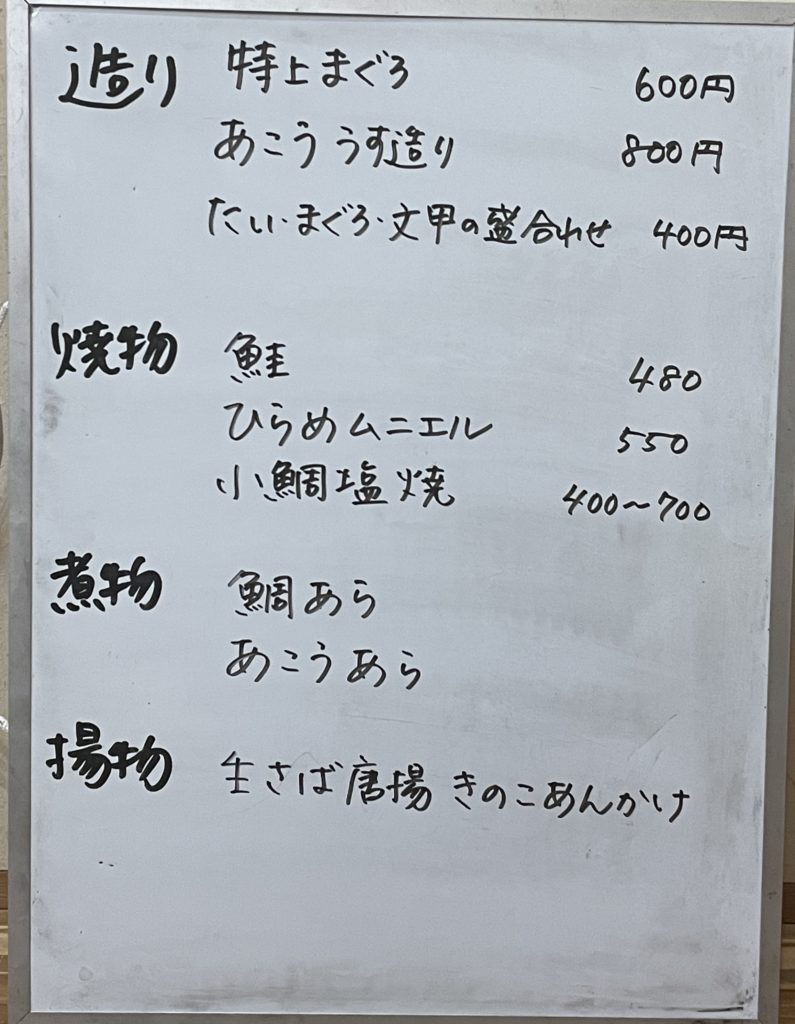 造り 特上まぐろ 600円
あこう うす造り 800円
たい・まぐろ・文甲の盛合わせ 400円
焼物 鮭 480
ひらめムニエル 550
小鯛塩焼 400~700
煮物 鯛あら
あこうあら
揚物 生さば唐揚 きのこあんかけ